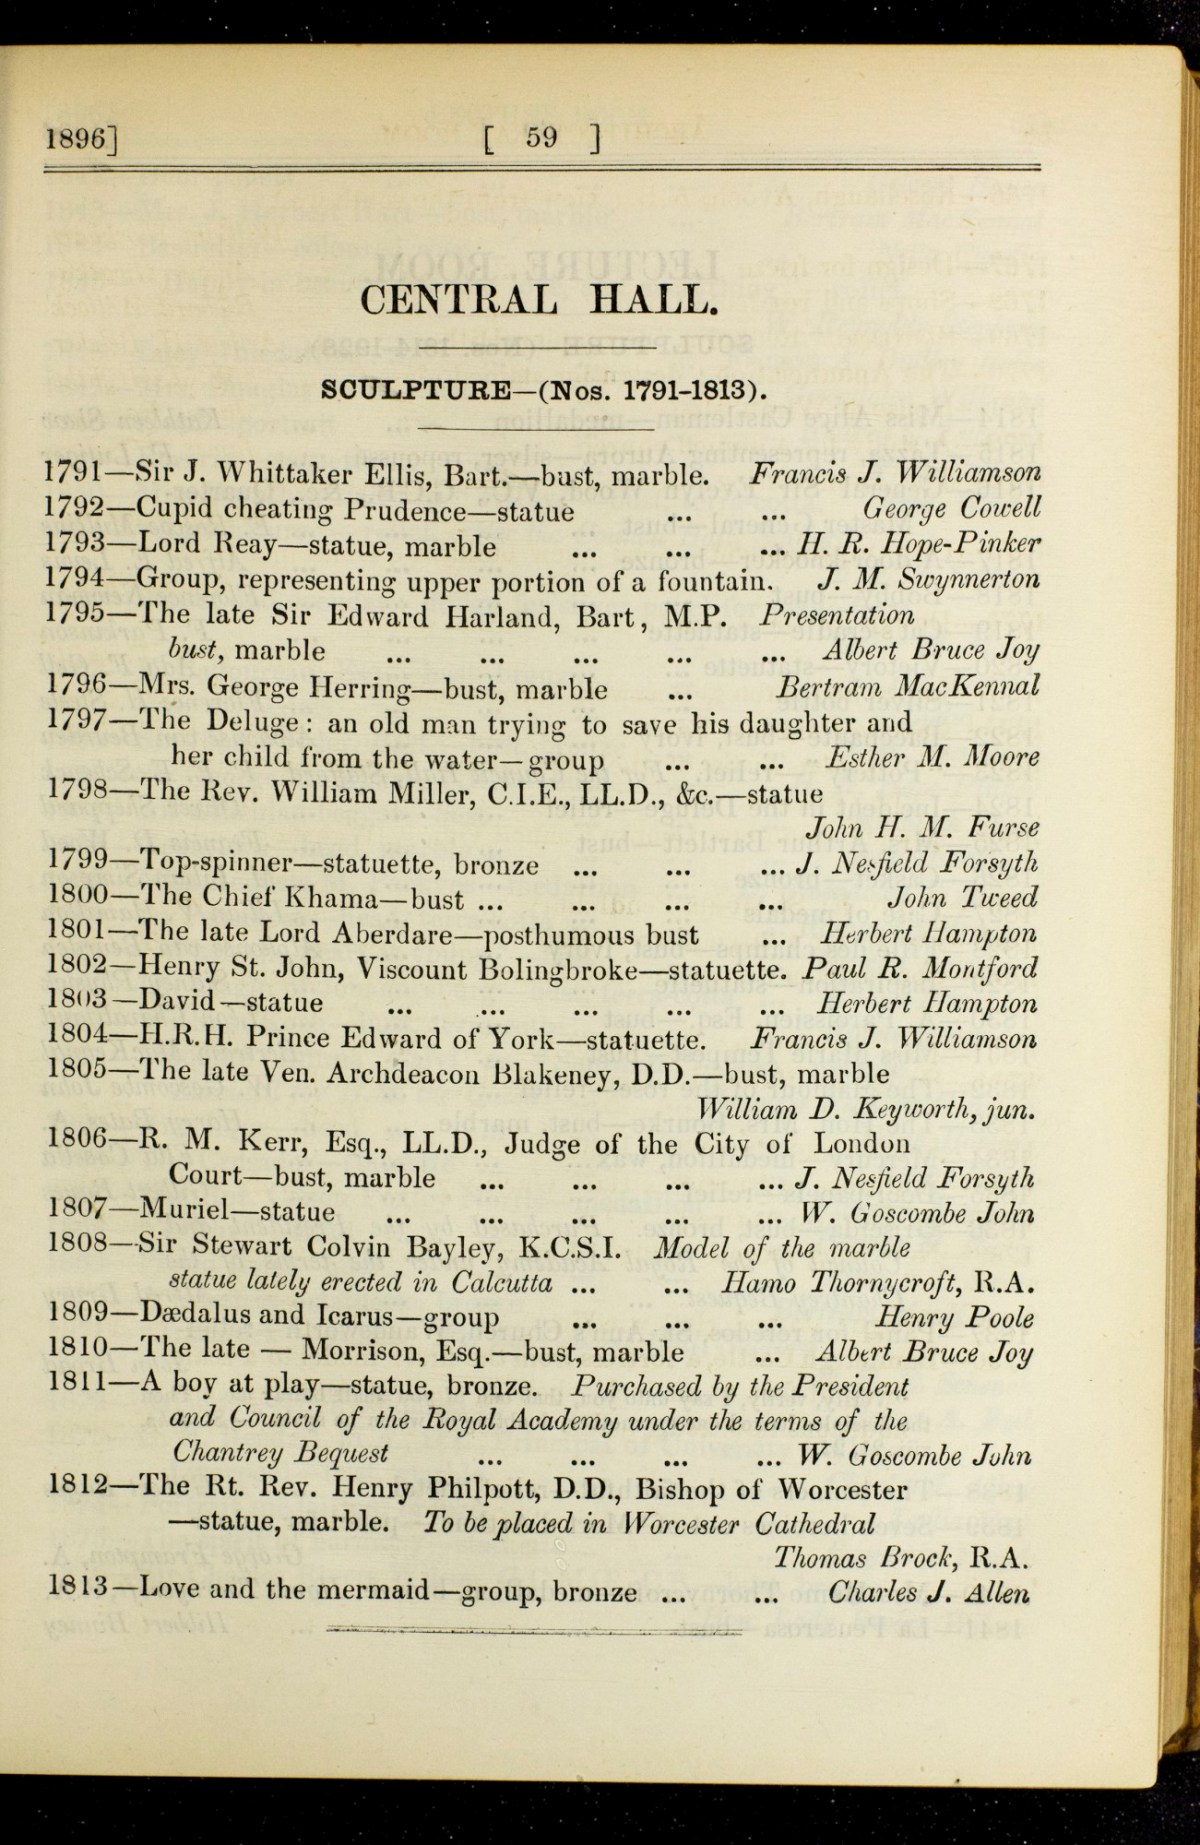 1896]
[ 59 ]
CENTRAL HALL.
SCULPTURE—(Nos. 1791-1813).
1791—Sir J. Whittaker Ellis, Bart.—bust, marble. Francis J. Williamson
1792—Cupid cheating Prudence—statue ... ... George Cowell
1793—Lord Reay—statue, marble ... ... ... H. R. Hope-Pinker
1794—Group, representing upper portion of a fountain. J. M. Swynnerton
1795—The late Sir Edward Harland, Bart, M.P. Presentation
bust, marble ... ... ... ... ... Albert Bruce Joy
1796—Mrs. George Herring—bust, marble ... Bertram MacKennal
1797—The Deluge: an old man trying to save his daughter and
her child from the water—group ... ... Esther M. Moore
1798—The Rev. William Miller, C.I.E., LL.D., &c.—statue
John H. M. Furse
1799—Top-spinner—statuette, bronze ... ... ... J. Nesfield Forsyth
1800—The Chief Khama—bust ... ... ... ... John Tweed
1801—The late Lord Aberdare—posthumous bust ... Herbert Hampton
1802—Henry St. John, Viscount Bolingbroke—statuette. Paul R. Montford
1803—David—statue ... ... ... ... ... Herbert Hampton
1804—H.R.H. Prince Edward of York—statuette. Francis J. Williamson
1805—The late Ven. Archdeacon Blakeney, D.D.—bust, marble
William D. Keyworth, jun.
1806—R. M. Kerr, Esq., LL.D., Judge of the City of London
Court—bust, marble ... ... ... ... J. Nesfield Forsyth
1807—Muriel—statue ... ... ... ... ... W. Goscombe John
1808—Sir Stewart Colvin Bayley, K.C.S.I. Model of the marble
statue lately erected in Calcutta ... ... Hamo Thornycroft, R.A.
1809—Dædalus and Icarus—group ... ... ... Henry Poole
1810—The late — Morrison, Esq.—bust, marble ... Albert Bruce Joy
1811—A boy at play—statue, bronze. Purchased by the President
and Council of the Royal Academy under the terms of the
Chantrey Bequest ... ... ... ... W. Goscombe John
1812—The Rt. Rev. Henry Philpott, D.D., Bishop of Worcester
—statue, marble. To be placed in Worcester Cathedral
Thomas Brock, R.A.
1813—Love and the mermaid—group, bronze ... ... Charles J. Allen